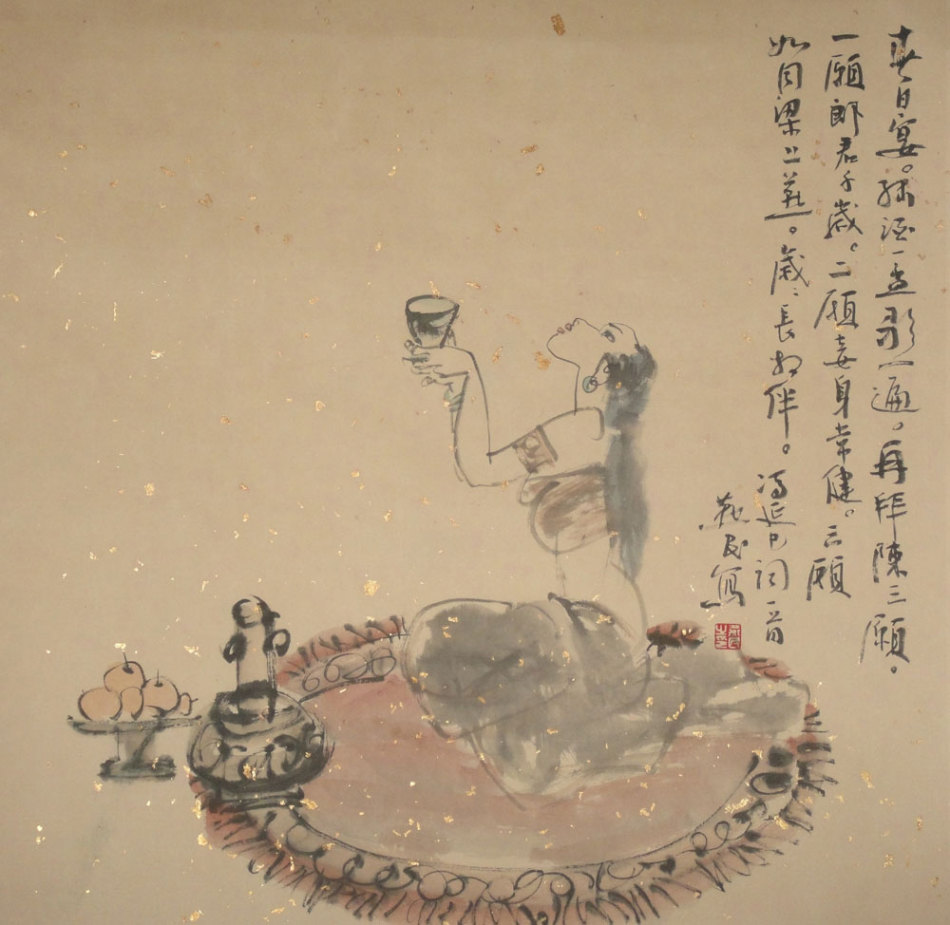 春日宴。綠酒一盃歌一遍。再拜陳三願。
一願郎君千歲。二願妾身常健。三願
如同梁上燕。歲〻長相伴。馮延巳詞一首
民寫